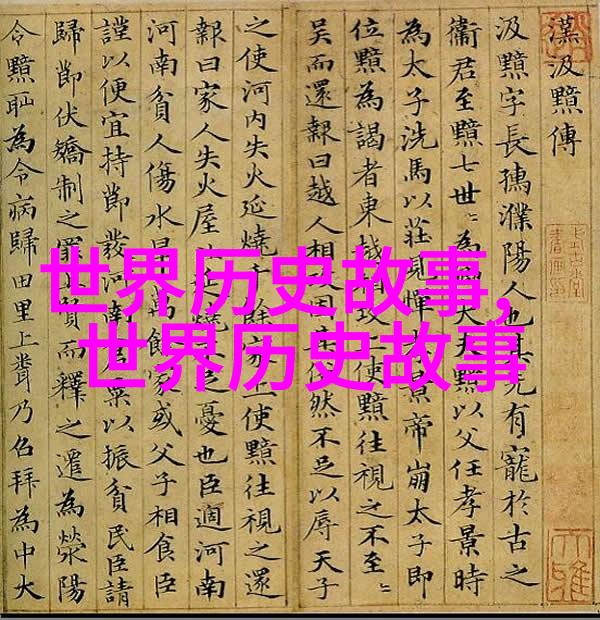 漢汲黯傳
汲黯字長孺濮陽人也其先有寵於古之
衛君至黯七世〻為大夫黯以父任孝景時
為太子洗馬以莊見憚孝景帝崩太子即
位黯為謁者東越相攻上使黯往視之不至〻
吳而還報曰越人相攻固然不足以辱天子
之使河内失火延燒千餘家上使黯往視之還
報曰家人失火屋比延燒不足憂也臣過河南
河南貧人傷水旱萬餘家或父子相食臣
謹以便宜持節發河南倉粟以振貧民臣請
歸節伏矯制之罪上賢而釋之遷為滎陽
令黯恥為令病歸田里上聞乃召拜為中大
世界历史故事,
世界历史故事